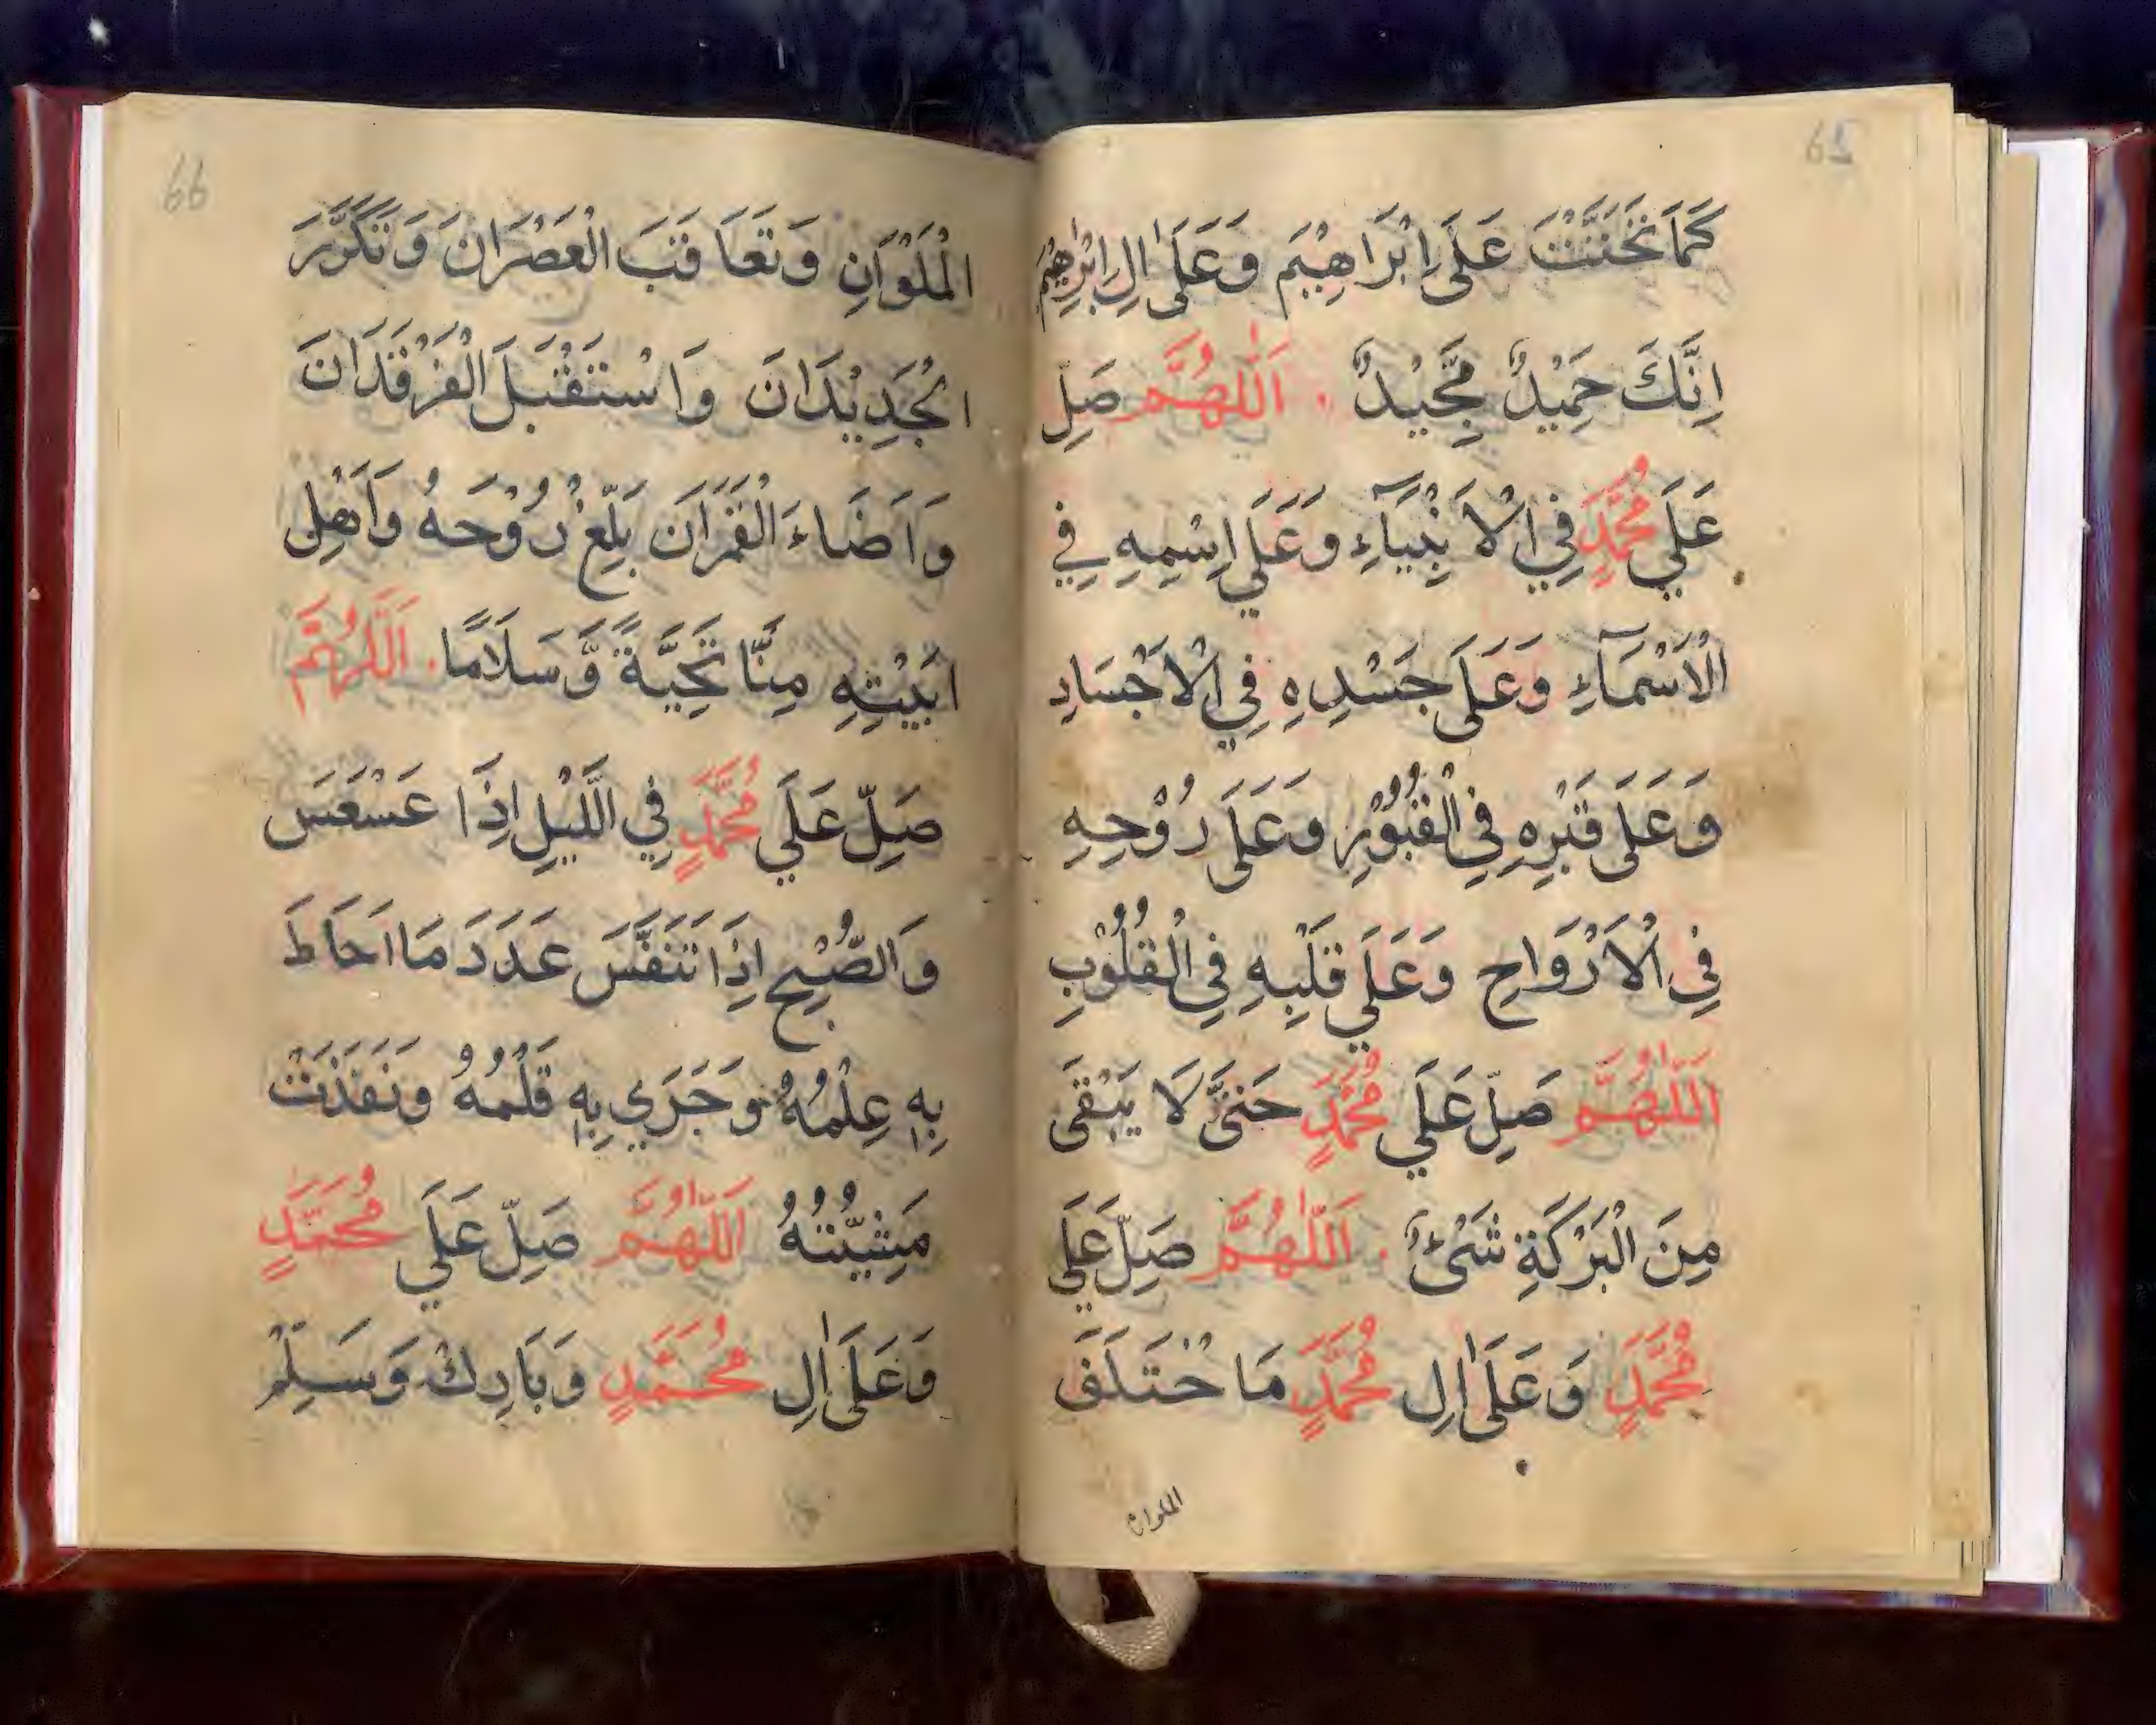 65
كَمَا تَحَنَّنْتَ عَلَى اِبْرَاهِيْمَ وَعَلَى اٰلِ اِبْرٰهِيْمَ
اِنَّكَ حَمِيْدٌ مَّجِيْدٌ . اَللّٰهُمَّ صَلِ
عَلَي مُحَمَّدٍ فِي الْاَنْبِيَآءِ وَعَلَي اِسْمِهِ فِي
الْاَسْمَآءِ وَعَلَى جَسَدِهِ فِي الْاَجْسَادِ
وَعَلَى قَبْرِهِ فِي الْقُبُوْرِ وَعَلَى رُوْحِهِ
فِي الْاَرْوَاحِ وَعَلَي قَلْبِهِ فِي الْقُلُوْبِ
اَللّٰهُمَّ صَلِّ عَلَي مُحَمَّدٍ حَتَّى لَا يَبْقَى
مِنَ الْبَرَكَةِ شَىْءٌ . اَللّٰهُمَّ صَلِّ عَلَي
مُحَمَّدٍ وَعَلَى اٰلِ مُحَمَّدٍ مَا خْتَلَفَ
الملوان
66
الْمَلَوَانِ وَتَعَاقَبَ الْعَصْرَانَ وَتَكَرَّرَ
الْجَدِيْدَانَ وَاسْتَقْبَلَ الْفَرْقَدَانَ
وَاَضَاءَ الْقَمَرَانَ بَلِّغْ رُوْحَهُ وَاَهْلِ
ابَيْتِهِ مِنَّا تَحِيَّةً وَّسَلَامًا . اَللّٰهُمَّ
صَلِّ عَلَي مُحَمَّدٍ فِي الَّيْلِ اِذَا عَسْعَسَ
وَالصُّبْحِ اِذَا تَنَفَّسَ عَدَدَ مَا اَحَاطَ
بِهِ عِلْمُهُ وَجَرَي بِهِ قَلَمُهُ وَنَفَذَتْ
مَشِيَّتُهُ اَللّٰهُمَّ صَلِّ عَلَي مُحَمَّدٍ
وَعَلَى اٰلِ مُحَمَّدٍ وَبَارِكْ وَسَلِّمْ